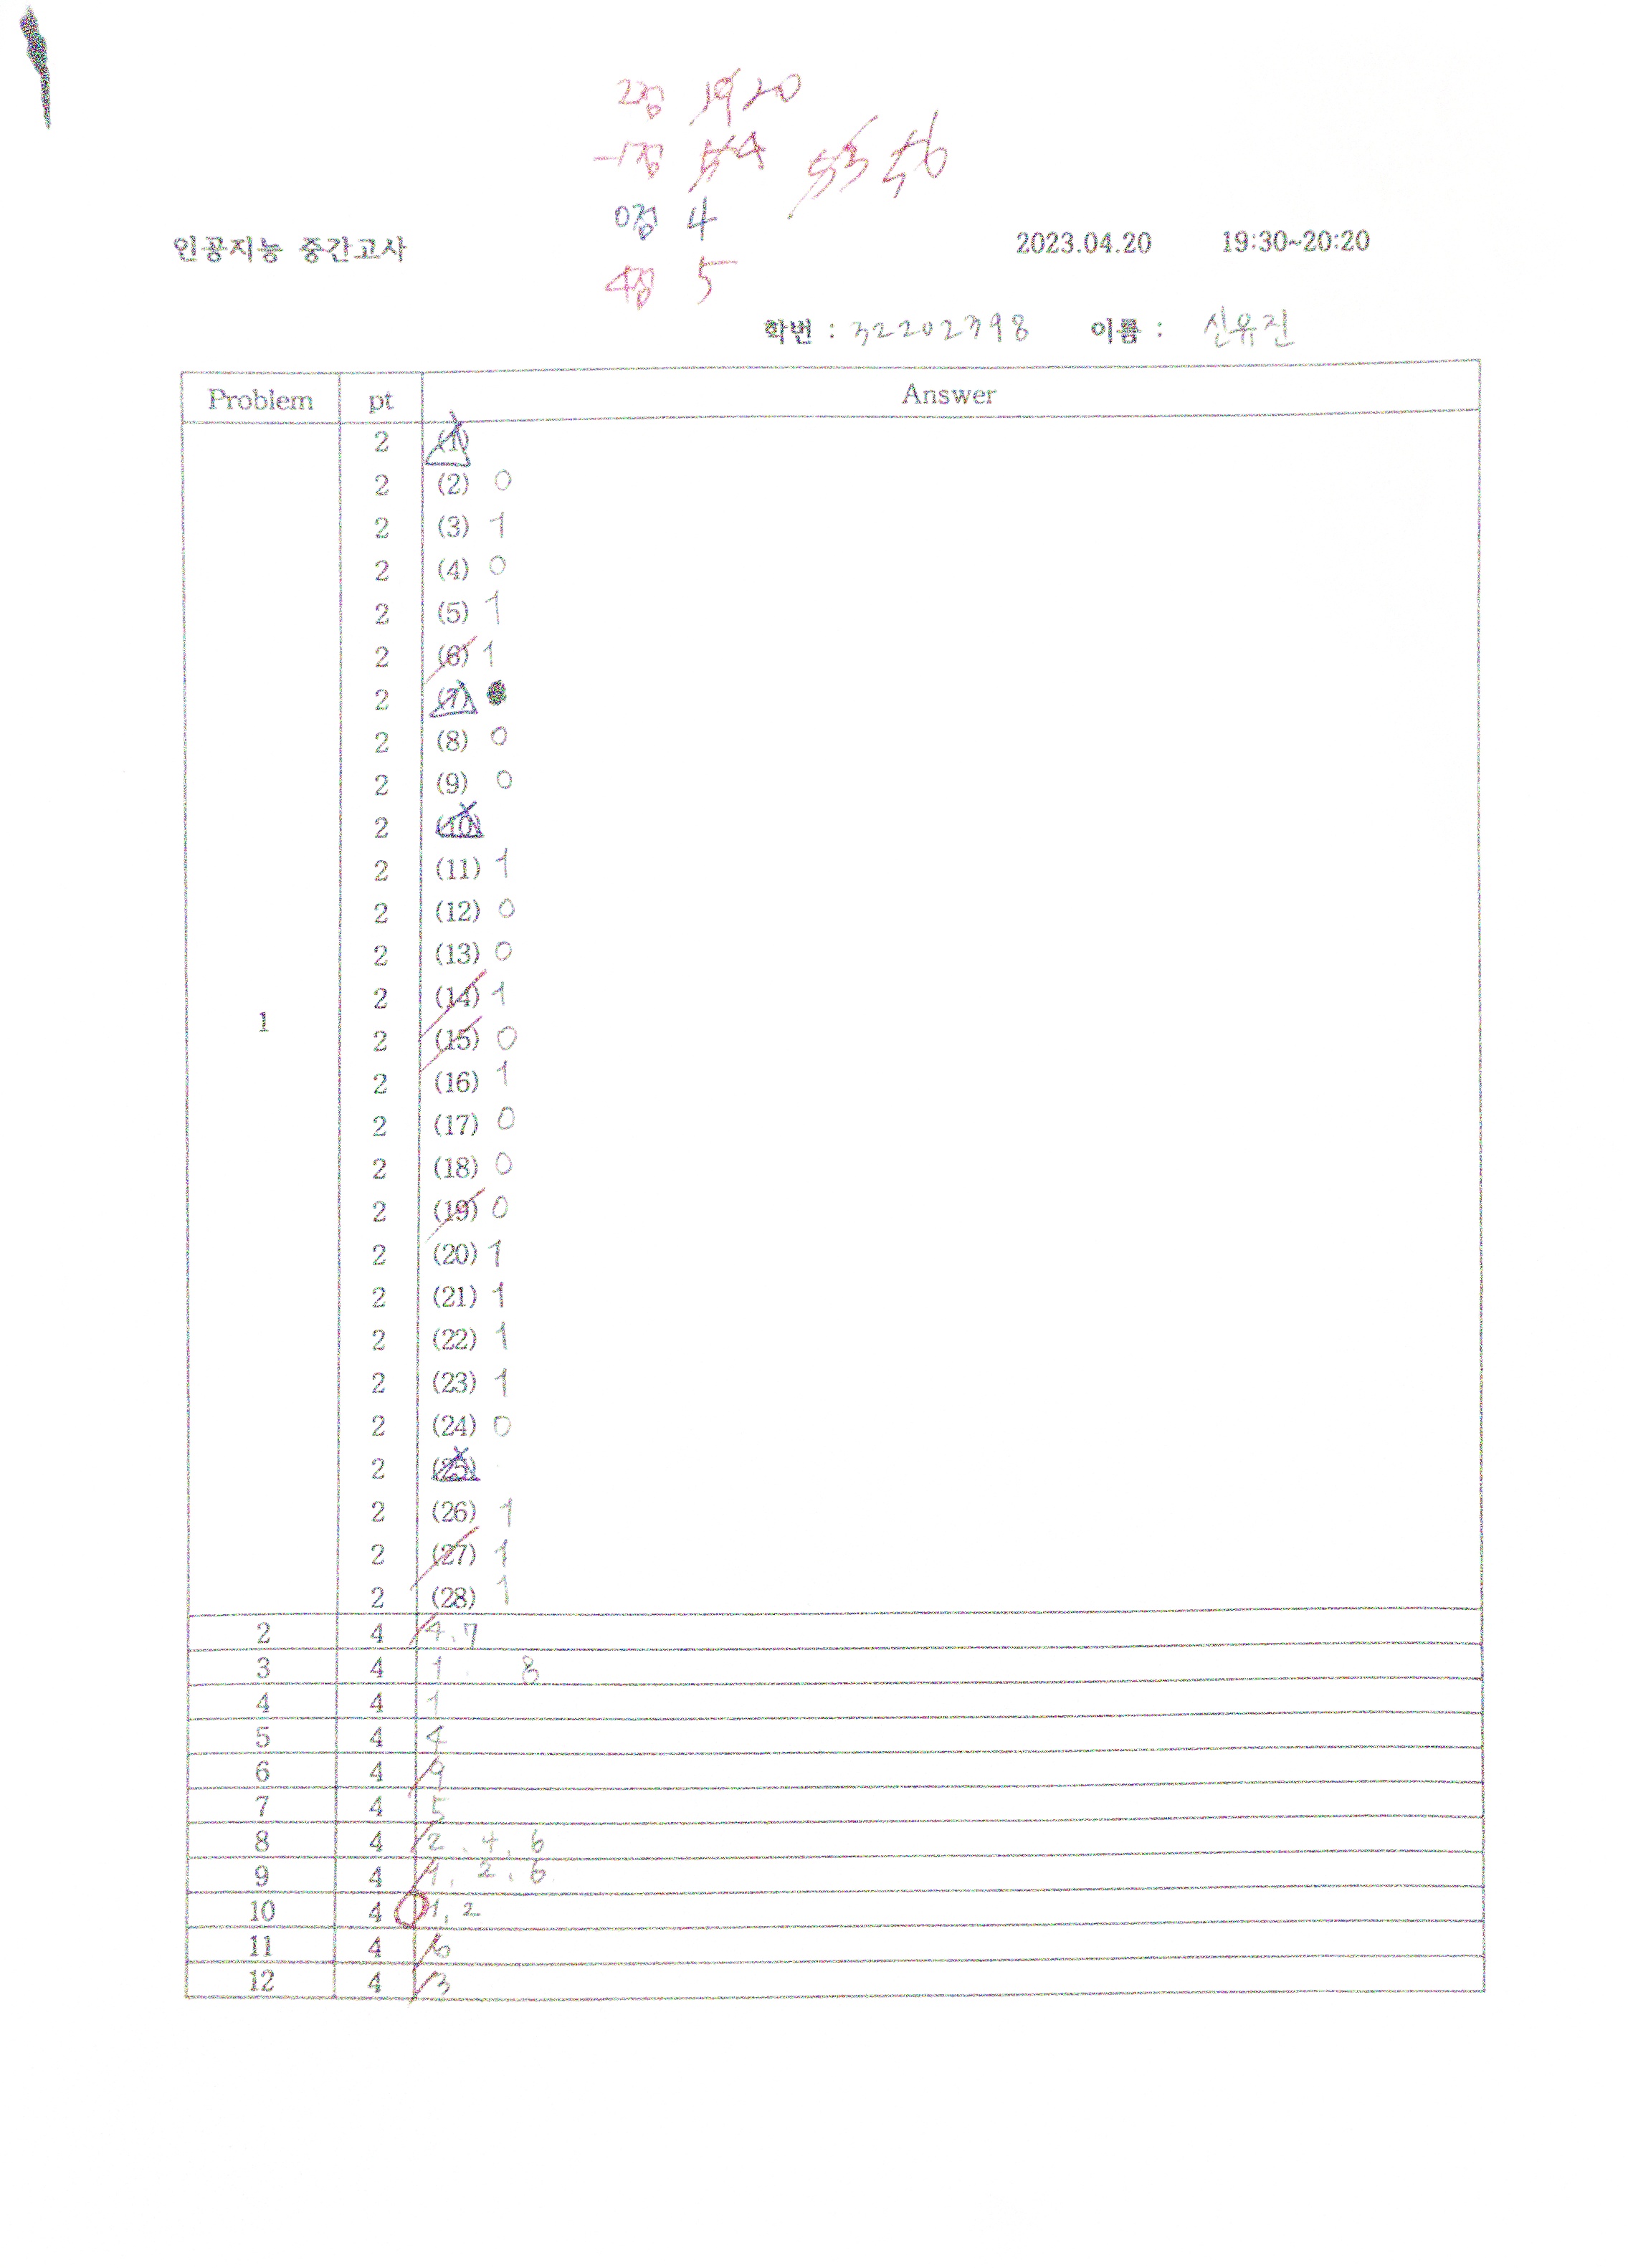 2점 19 20
-1점 5 4 53 56
0점 4
4점 5
인공지능 중간고사 2023.04.20 19:30~20:20
학번 : 32202398 이름 : 신유진
Problem pt Answer
2 (1)
2 (2) 0
2 (3) 1
2 (4) 0
2 (5) 1
2 (6) 1
2 (7)
2 (8) 0
2 (9) 0
2 (10)
2 (11) 1
2 (12) 0
2 (13) 0
2 (14) 1
1
2 (15) 0
2 (16) 1
2 (17) 0
2 (18) 0
2 (19) 0
2 (20) 1
2 (21) 1
2 (22) 1
2 (23) 1
2 (24) 0
2 (25)
2 (26) 1
2 (27) 1
2 (28) 1
2 4 4, 7
3 4 1 8
4 4 1
5 4 4
6 4 9
7 4 5
8 4 2, 4, 6
9 4 1, 2, 6
10 4 1, 2
11 4 6
12 4 3